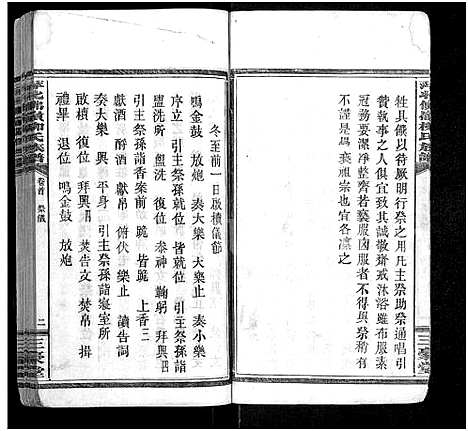 牲具儀以待厥明行祭之用凡主祭助祭通唱引
贊以及與祭者俱宜致其誠戒沐浴雖布服素
冠務要整齊若褻服囟服者不得與祭所以
不謹是以宜各凛之
三豪堂
冬至前一日啟櫝儀節
鳴金鼓 放炮 奏大樂 大樂止 奏小樂
序立 引主祭孫就位 皆就位 引主祭孫詣
盥洗所 盥洗 復位 參神 鞠躬 拜興四
引主祭孫詣香案前 皆跪 上香三
獻酒 酹酒 獻帛 俯伏 樂止 讀告詞
奏大樂 興 平身 引主祭孫詣寢室所
跪 啟櫝 復位 拜興四 焚告文 焚帛 揖
禮畢 退位 鳴金鼓 放炮
卷首 祭儀
二
三豪堂